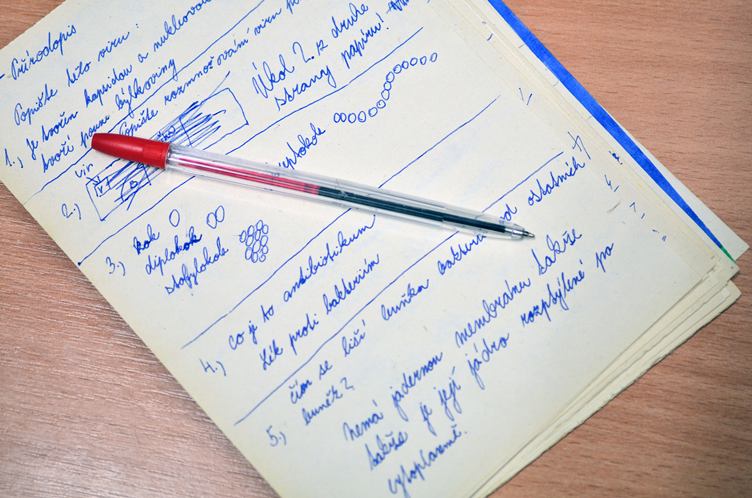 - Přírodopis
Popište tělo viru:
1.) Je tvořen kapsidou a nukleovou
tvoří pouze bílkoviny
Popište rozmnožování viru
vir
2.)
Úkol 2. je z druhé
strany papíru!
3.) kok
diplokok
stafylokok
4.) Co je to antibiotikum
Lék proti bakteriím
5.) čím se liší buňka bakterie od ostatních
buněk?
Nemá jadernou membránu takže
takže je její jádro rozptýlené po
cytoplazmě.